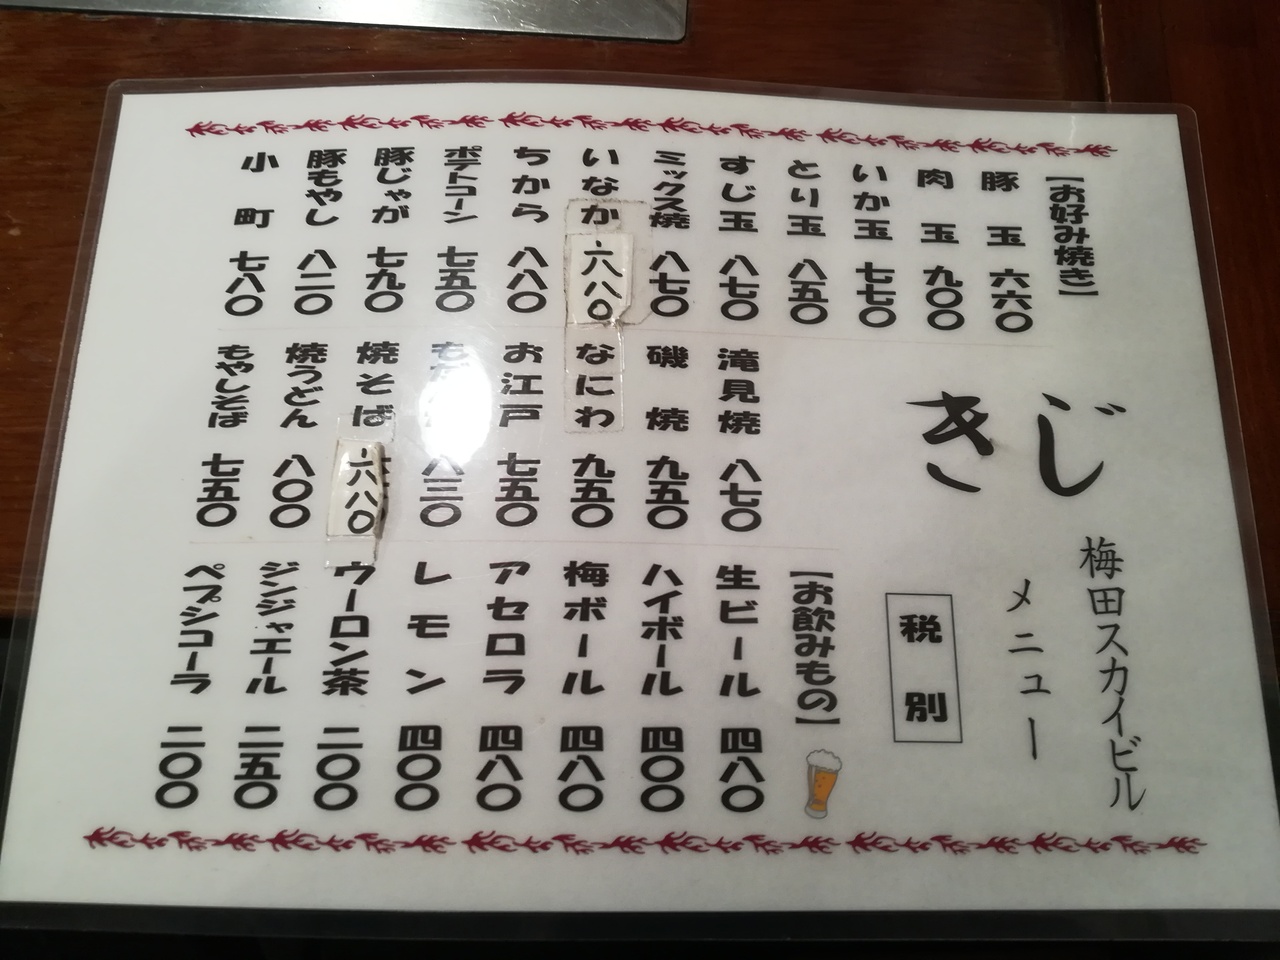 きじ
梅田スカイビル
メニュー
税別
【お好み焼き】
豚玉 六六〇
肉玉 九〇〇
いか玉 七七〇
とり玉 八五〇
すじ玉 八七〇
ミックス焼 八七〇
いなか 六八〇
ちから 八八〇
ポテトコーン 七五〇
豚じゃが 七九〇
豚もやし 八二〇
小町 七八〇
滝見焼 八七〇
磯焼 九五〇
なにわ 九五〇
お江戸 七五〇
八三〇
焼そば 六八〇
焼うどん 八〇〇
もやしそば 七五〇
【お飲みもの】
生ビール 四八〇
ハイボール 四〇〇
梅ボール 四八〇
アセロラ 四八〇
レモン 四〇〇
ウーロン茶 二〇〇
ジンジャエール 二五〇
ペプシコーラ 二〇〇